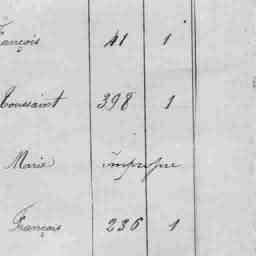 François 41 1
Toussaint 398 1
Marie impropre
François 236 1